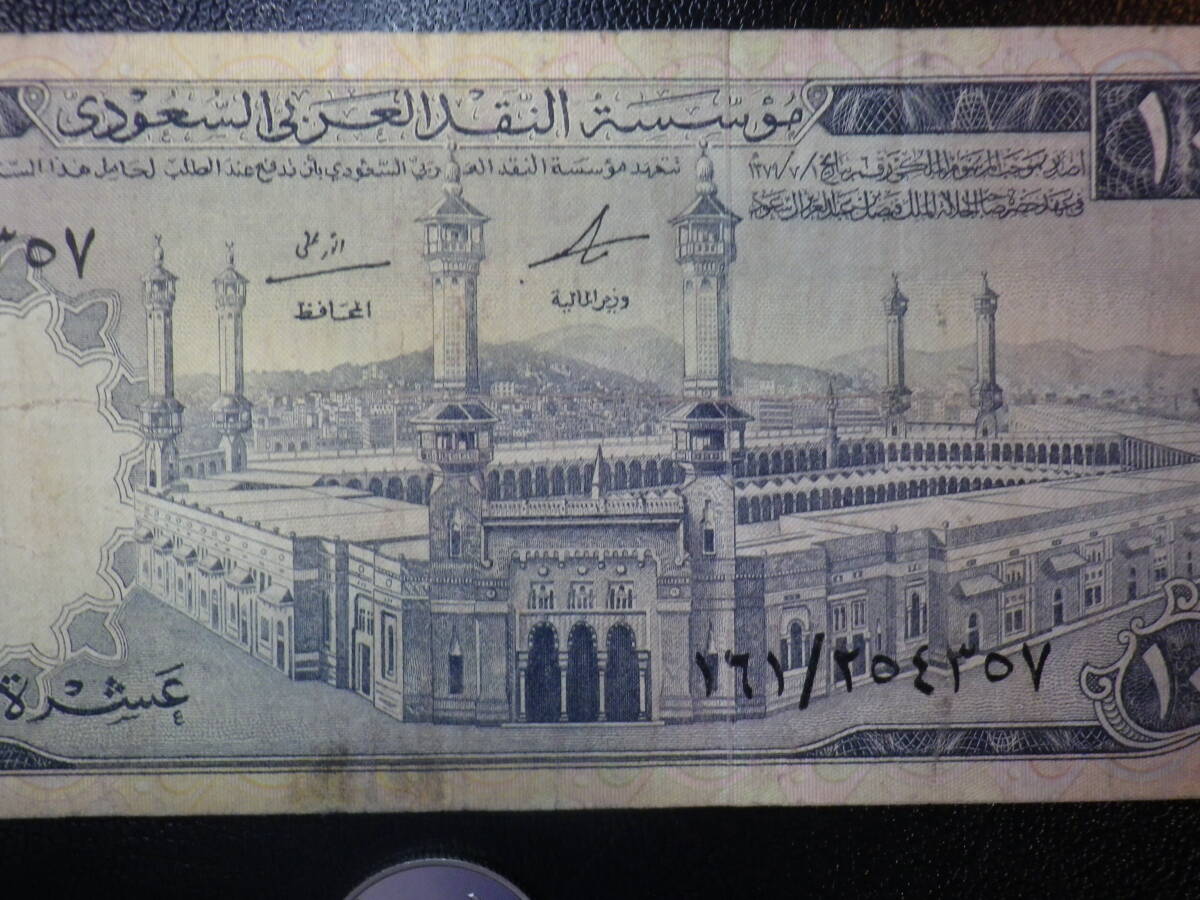 مؤسسة النقد العربي السعودي
١٠
تتعهد مؤسسة النقد العربي السعودي بأن تدفع عند الطلب لحامل هذا
أصدر بموجب المرسوم الملكي رقم بتاريخ ١٣٧٩/٧/١
في عهد حضرة صاحب الجلالة الملك فيصل بن عبدالعزيز آل سعود
٣٥٧
وزير المالية
المحافظ
١٦١/٢٥٤٣٥٧
عشرة
١٠